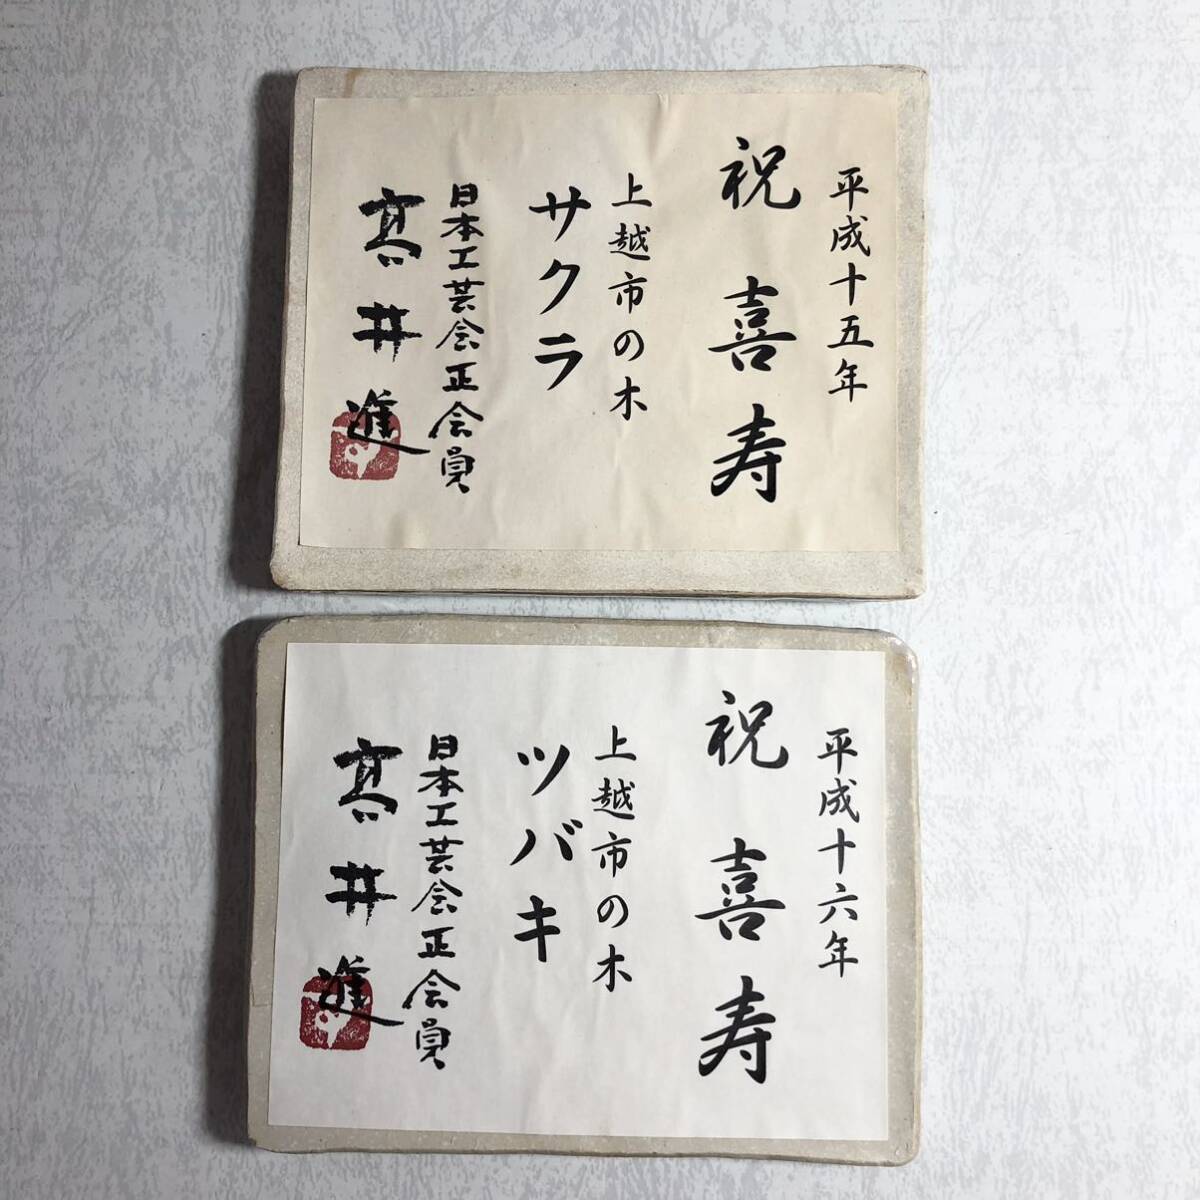 平成十五年
祝喜寿
上越市の木
サクラ
日本工芸会正会員
髙井進
平成十六年
祝喜寿
上越市の木
ツバキ
日本工芸会正会員
髙井進